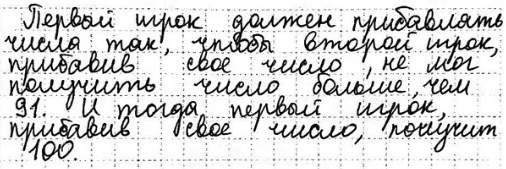 Первый игрок должен прибавлять
числа так, чтобы второй игрок,
прибавив своё число, не мог
получить число больше, чем
91. И тогда первый игрок,
прибавив своё число, получит
100.